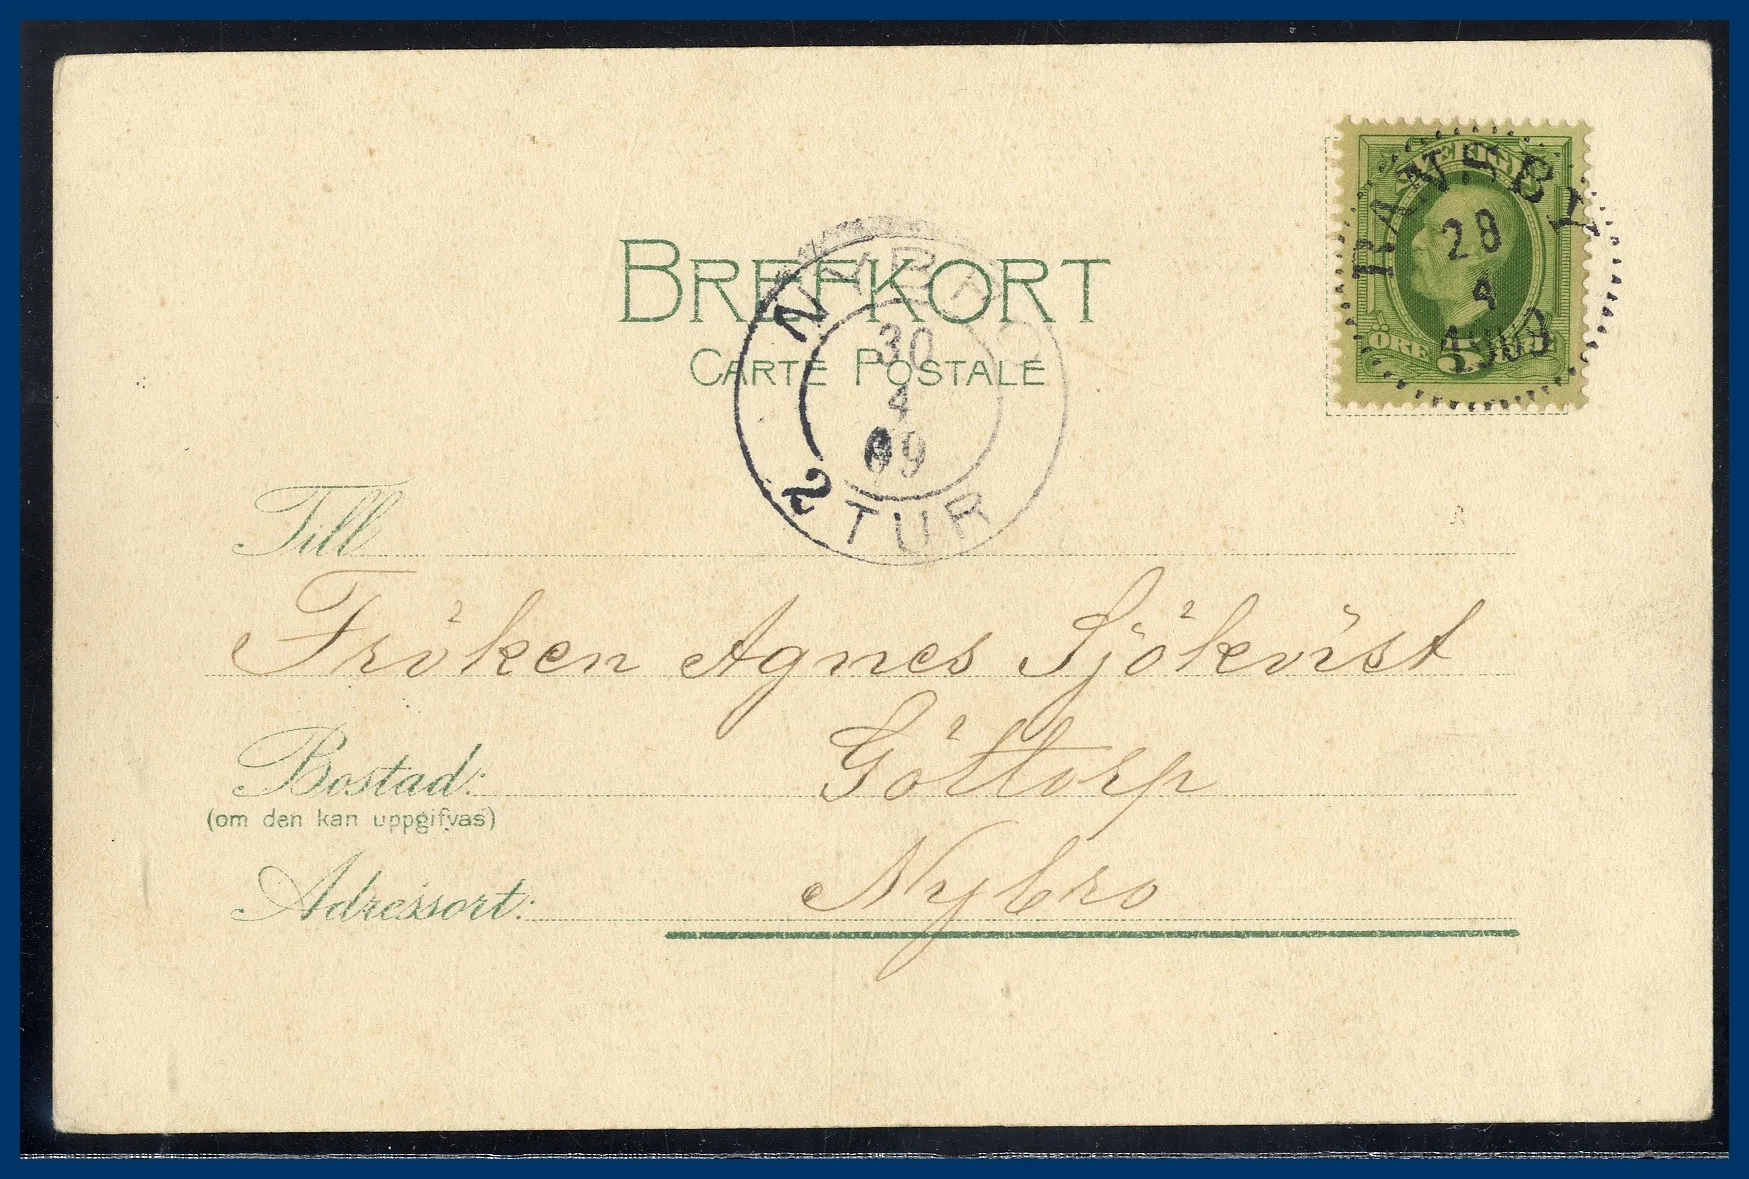 SVERIGE
RANSBY
28
4
1909
ÖRE 5 ÖRE
NYBRO
30
4
09
2 TUR
BREFKORT
CARTE POSTALE
Till
Fröken Agnes Sjökvist
Bostad: Göttorp
(om den kan uppgifvas)
Adressort: Nybro